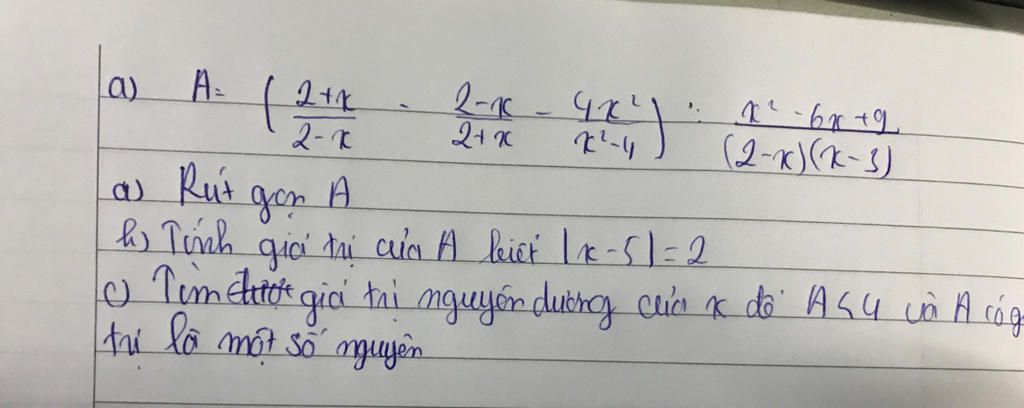 a) A = ( (2+x)/(2-x) - (2-x)/(2+x) - 4x²/(x²-4) ) : (x²-6x+9)/((2-x)(x-3))
a) Rút gọn A
b) Tính giá trị của A biết |x-5|=2
c) Tìm giá trị nguyên dương của x để A<4 và A có g
trị là một số nguyên